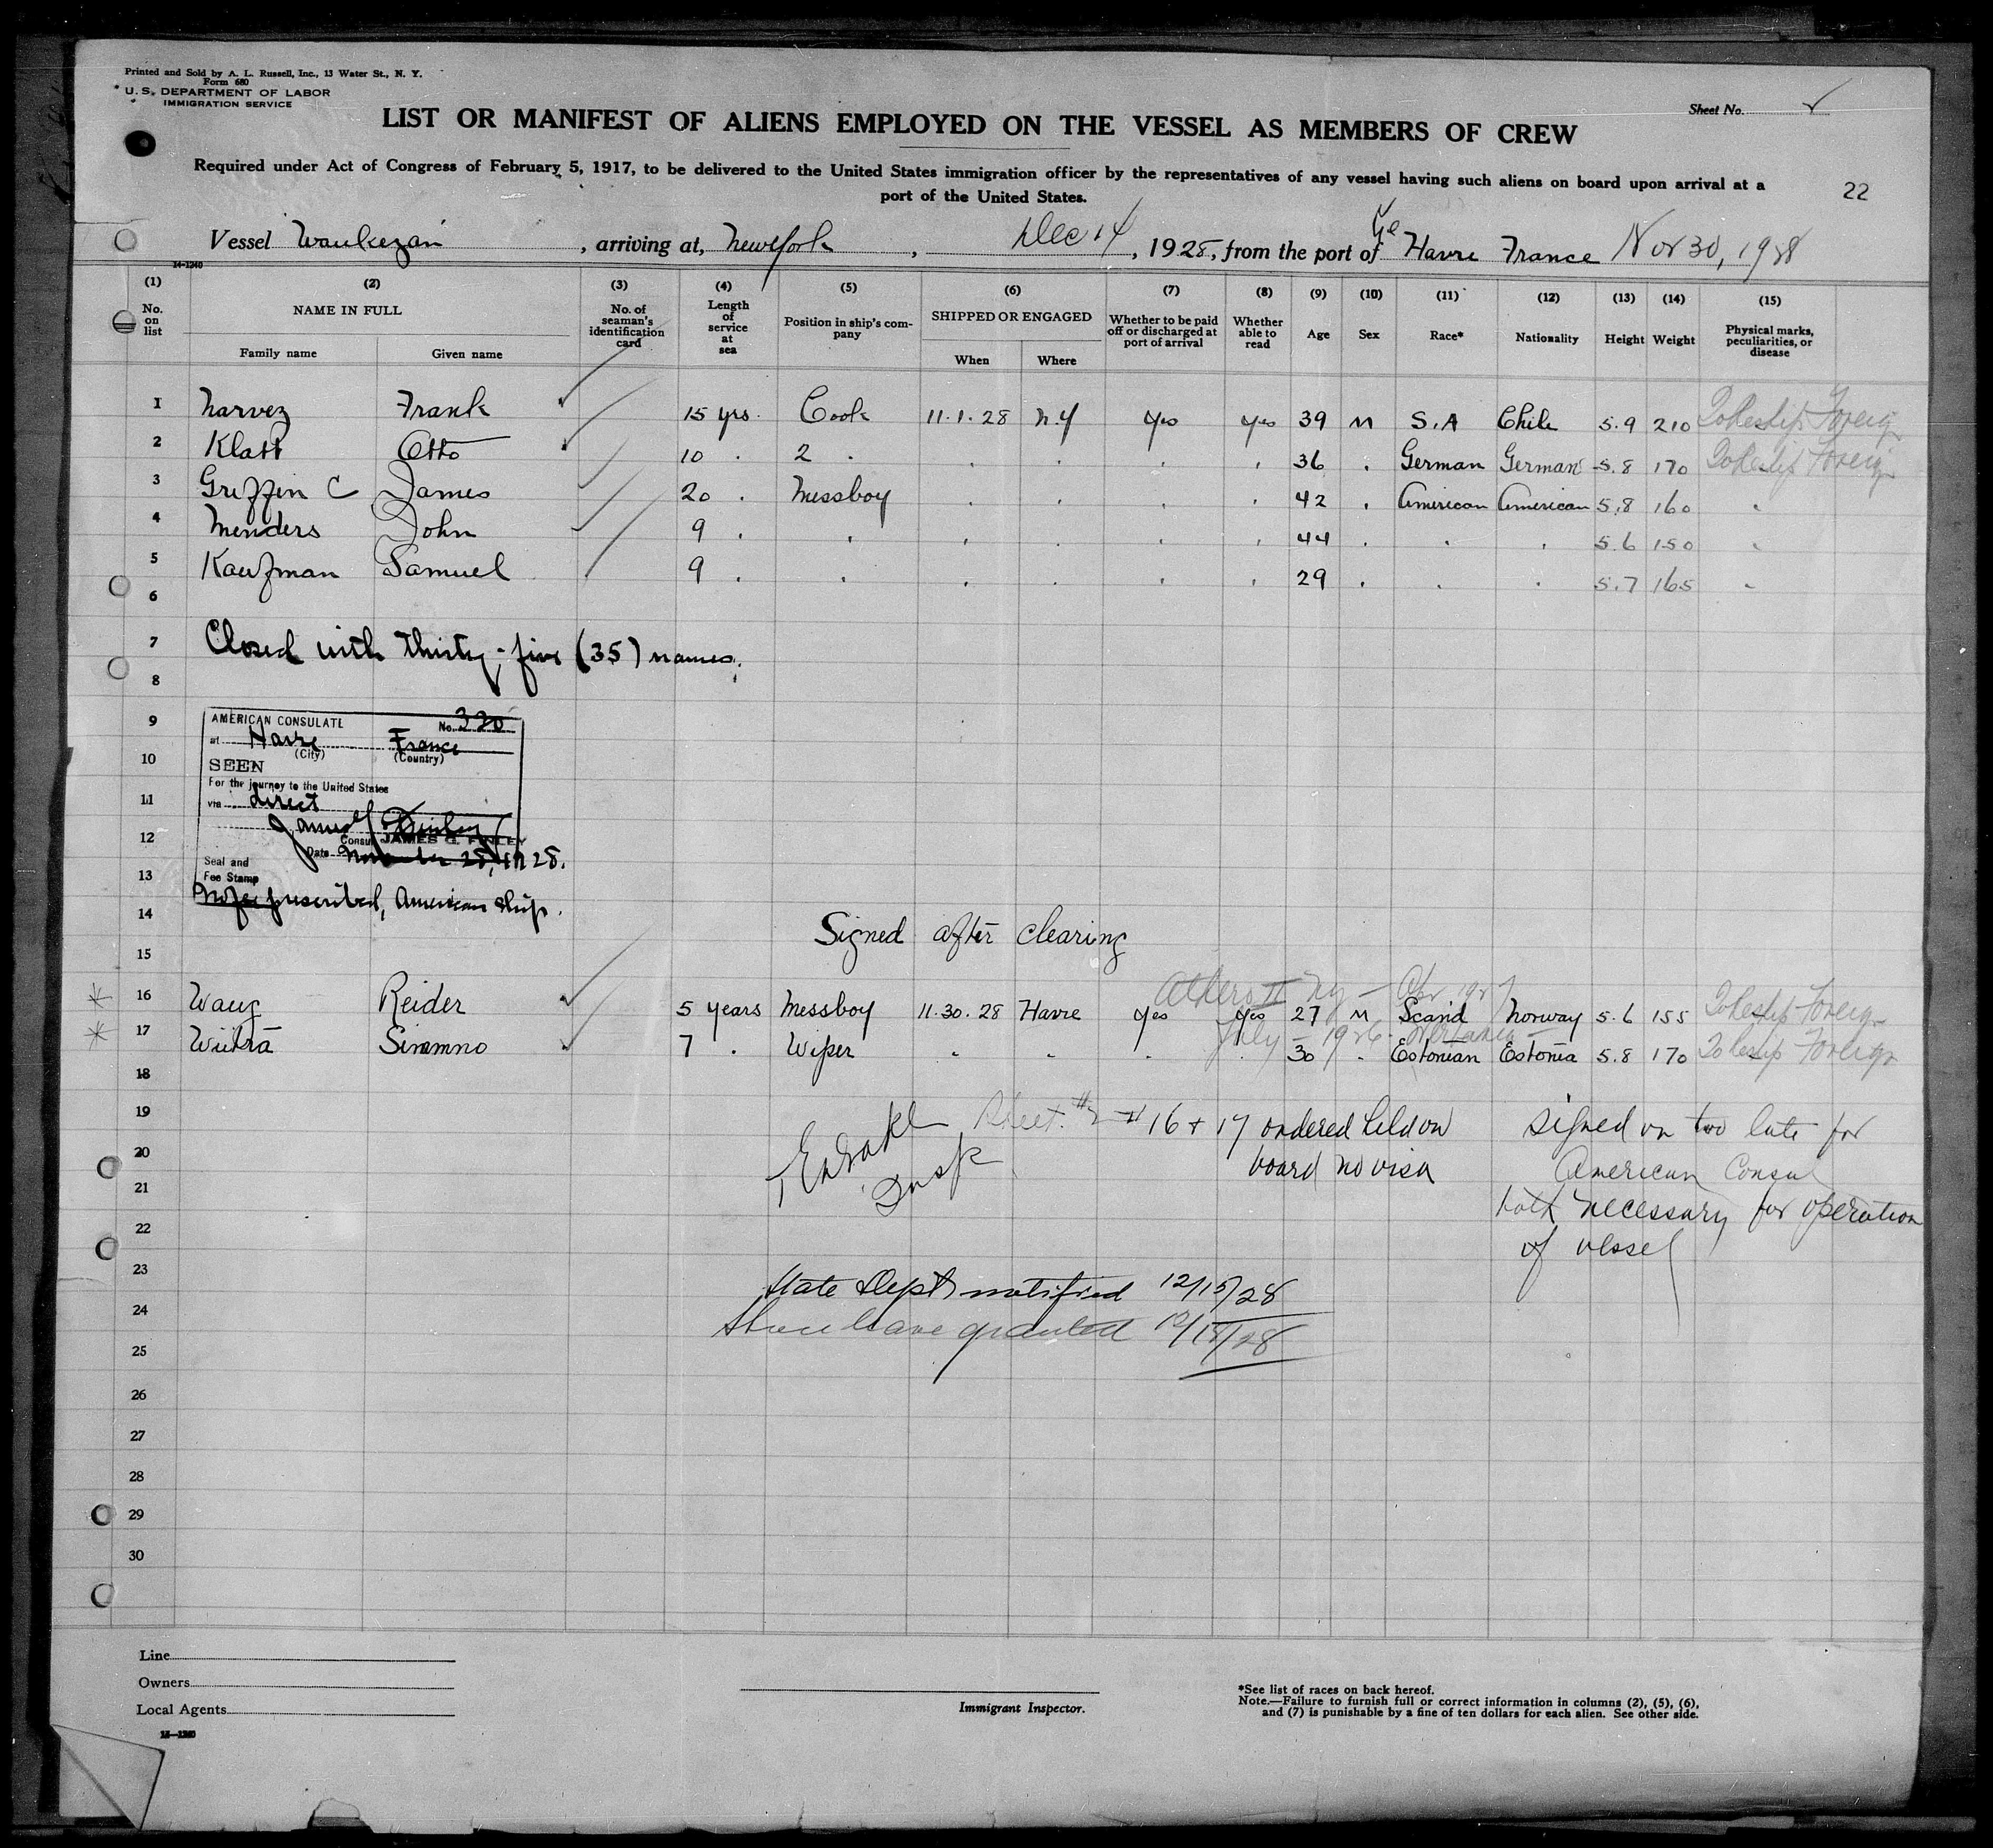 Printed and Sold by A. L. Russell, Inc., 13 Water St., N. Y.
Form 680
U. S. DEPARTMENT OF LABOR
IMMIGRATION SERVICE
Sheet No.
LIST OR MANIFEST OF ALIENS EMPLOYED ON THE VESSEL AS MEMBERS OF CREW
Required under Act of Congress of February 5, 1917, to be delivered to the United States immigration officer by the representatives of any vessel having such aliens on board upon arrival at a
port of the United States.
22
Vessel Waukegan, arriving at, New York, Dec 14, 1928, from the port of Havre France Nov 30, 1928
14-1240
(1) (2) (3) (4) (5) (6) (7) (8) (9) (10) (11) (12) (13) (14) (15)
No. on list NAME IN FULL No. of seaman's identification card Length of service at sea Position in ship's company SHIPPED OR ENGAGED Whether to be paid off or discharged at port of arrival Whether able to read Age Sex Race* Nationality Height Weight Physical marks, peculiarities, or disease
Family name Given name When Where
1 Narvez Frank 15 yrs. Cook 11.1.28 N.Y yes yes 39 M S.A Chile 5.9 210
2 Klatt Otto 10 . 2 . . . . . 36 . German German 5.8 170
3 Griffin C James 20 . Messboy . . . . 42 . American American 5.8 160
4 Menders John 9 . . . . . . 44 . . . 5.6 150
5 Kaufman Samuel 9 . . . . . . 29 . . . 5.7 165
6
7 Closed with thirty-five (35) names.
8
9 AMERICAN CONSULATE No. 320
at Havre France
(City) (Country)
10 SEEN
For the journey to the United States
11 via direct
12 Consul JAMES G. FINLEY
Date November 28, 1928.
Seal and
13 Fee Stamp
No fee prescribed, American ship.
14 Signed after clearing
15
16 Waug Reider 5 years Messboy 11.30.28 Havre yes yes 27 M Scand Norway 5.6 155
17 Wiikra Simmno 7 . Wiper . . . 30 . Estonian Estonia 5.8 170
18
19 Sheet #2 #16 + 17 ordered held on signed on two late for
20 Insp board no visa American Consul
21 both necessary for operation
22 of vessel
23 State Dept notified 12/15/28
24 Shore leave granted 12/18/28
25
26
27
28
29
30
Line
Owners
Local Agents
14-1240
Immigrant Inspector.
*See list of races on back hereof.
Note.—Failure to furnish full or correct information in columns (2), (5), (6),
and (7) is punishable by a fine of ten dollars for each alien. See other side.